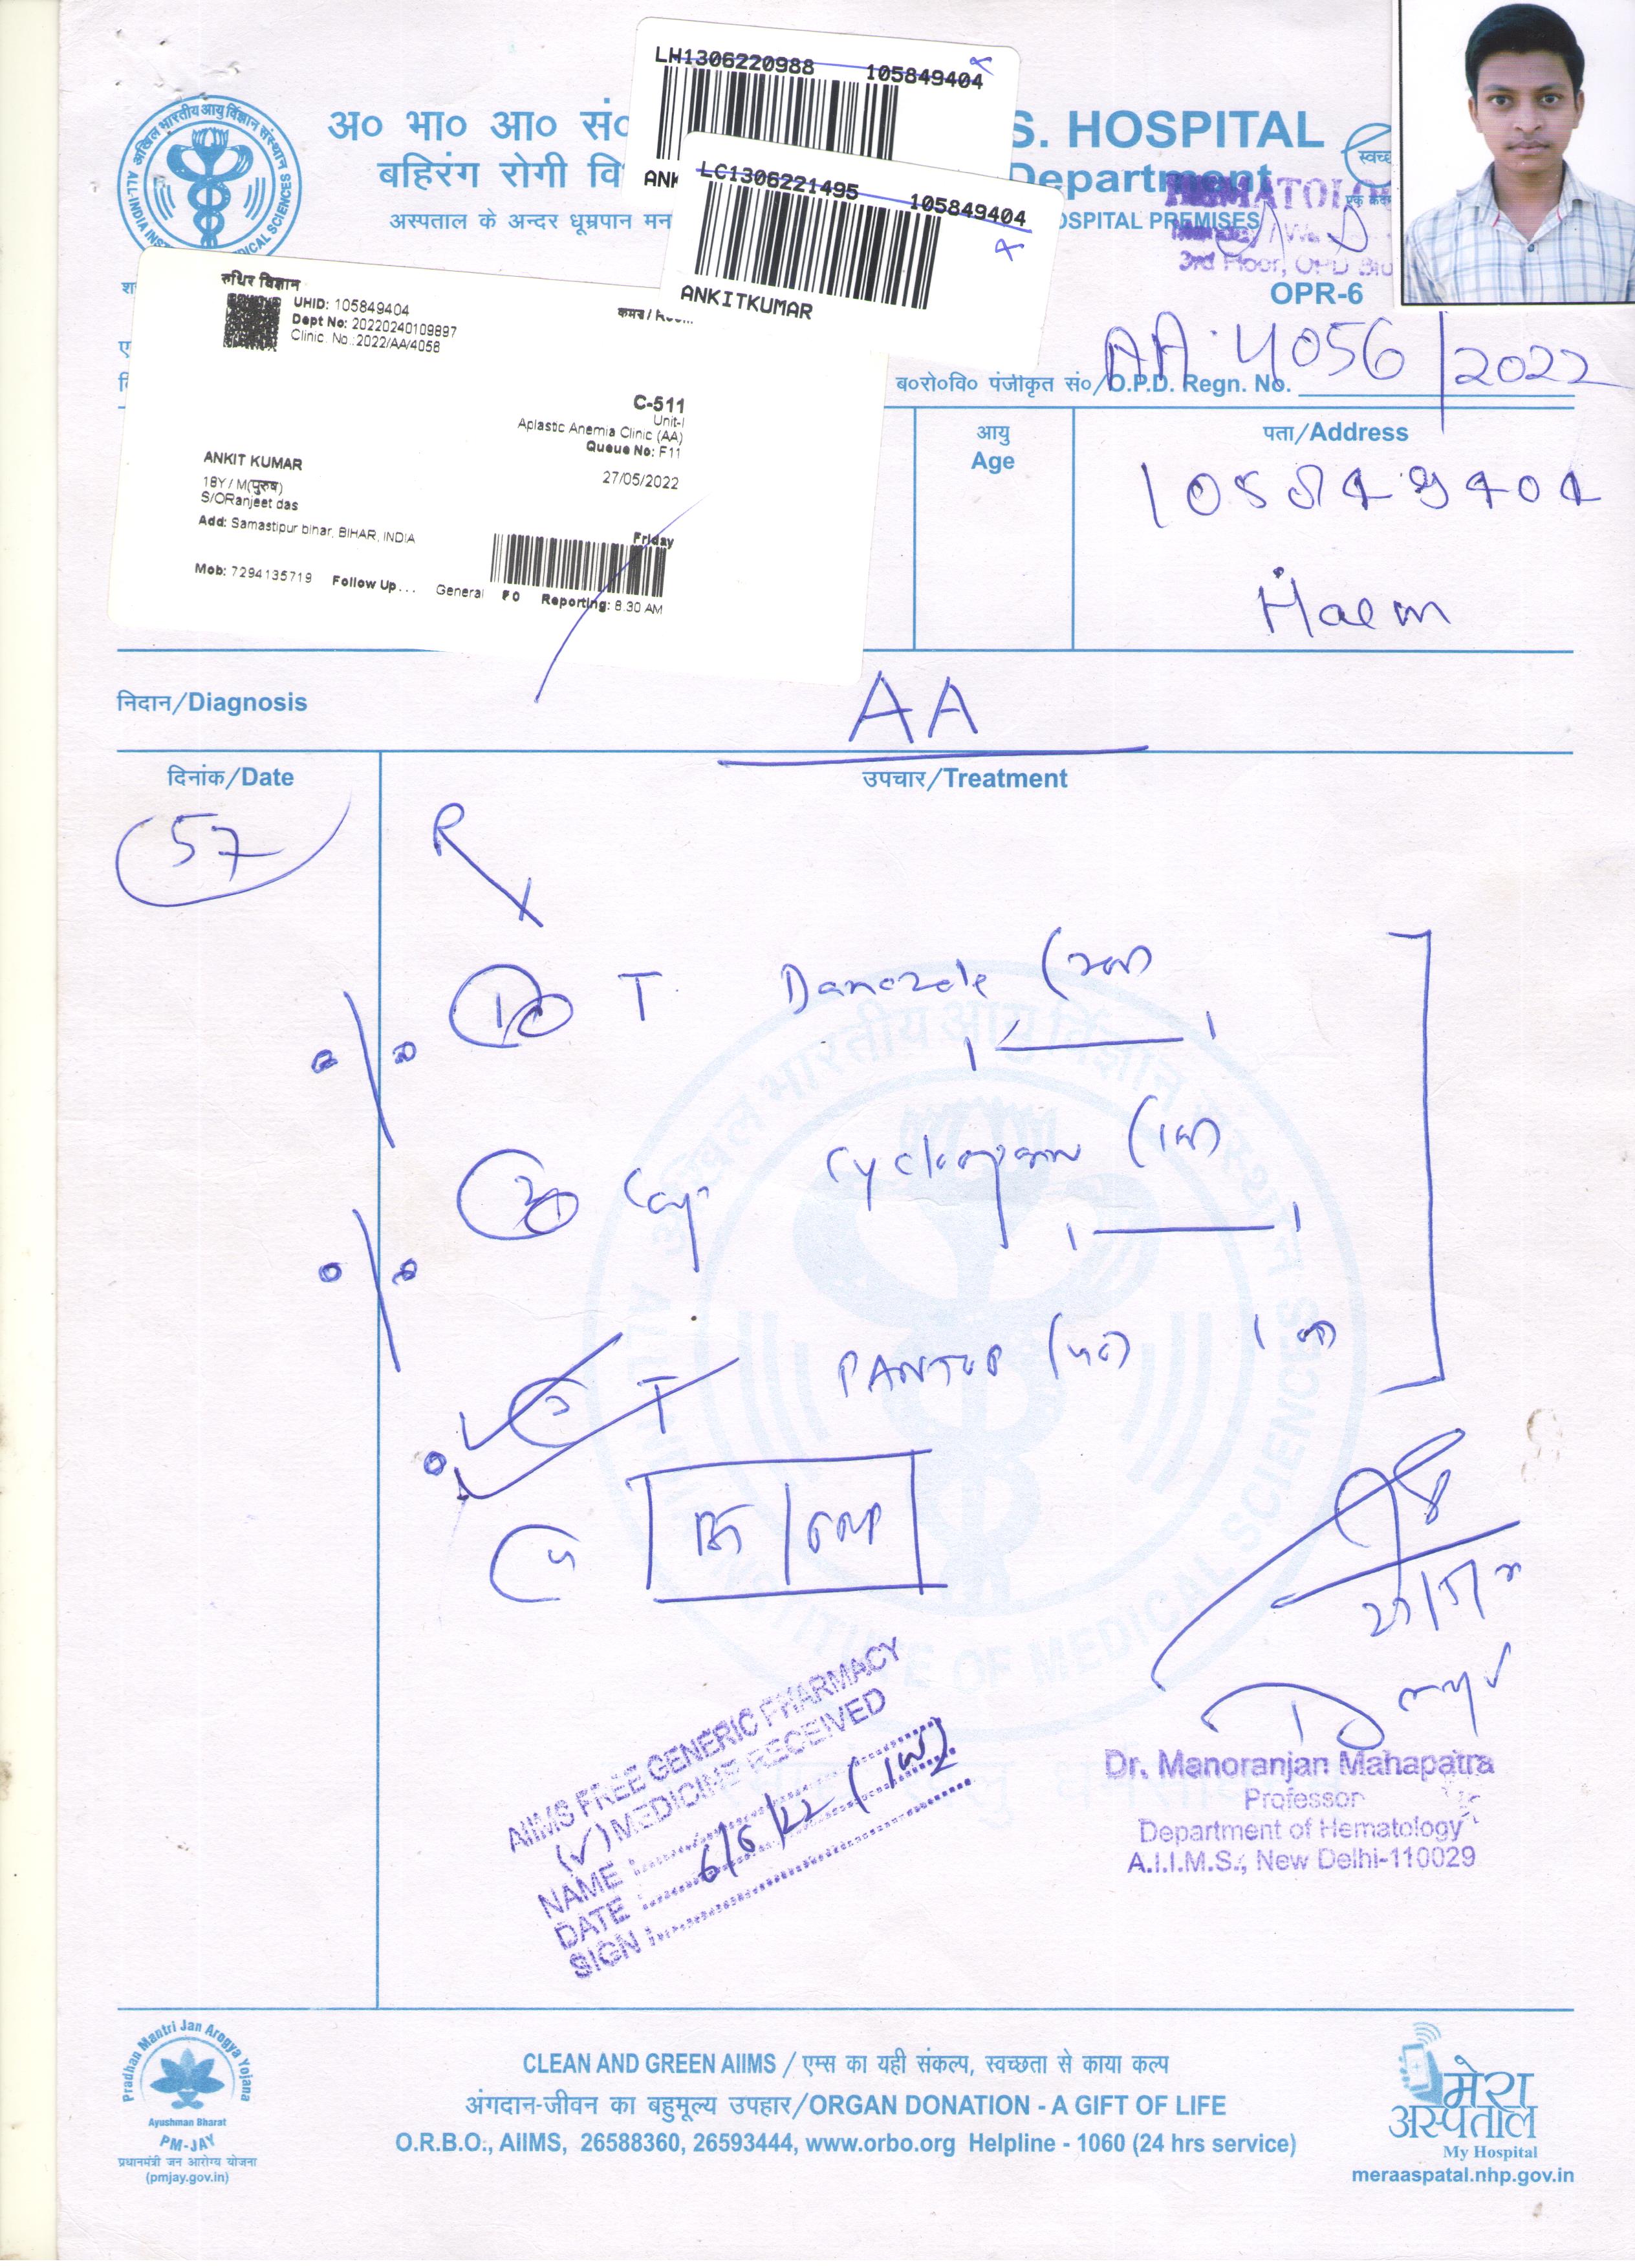 LH1306220988 105849404
अ० भा० आ० सं
S. HOSPITAL
बहिरंग रोगी वि
Department
ANK
LC1306221495 105849404
HEMATOLO
स्वच्छ
अस्पताल के अन्दर धूम्रपान मन
HOSPITAL PREMISES
3rd Floor, OPD Blo
ANKITKUMAR
OPR-6
रुधिर विज्ञान
UHID: 105849404
Dept No: 20220240109897
Clinic. No.:2022/AA/4058
कमरा / Room
AA. 4056/2022
ब०रो०वि० पंजीकृत सं०/O.P.D. Regn. No.
C-511
Unit-I
Aplastic Anemia Clinic (AA)
Queue No: F11
ANKIT KUMAR
27/05/2022
18Y / M(पुरुष)
S/ORanjeet das
Add: Samastipur bihar, BIHAR, INDIA
Friday
Mob: 7294135719 Follow Up... General ₹ 0 Reporting: 8.30 AM
आयु
Age
पता/Address
105849404
Haem
निदान/Diagnosis
AA
दिनांक/Date
उपचार/Treatment
57
Rx
1 T Danazole (200)
1 1
2 Cap. Cyclosporin (100)
1 1
3 T PANTOP (40) 1 OD
4
AIIMS FREE GENERIC PHARMACY
(✓) MEDICINE RECEIVED
NAME :
DATE : 6/6/22
SIGN :
Dr. Manoranjan Mahapatra
Professor
Department of Hematology
A.I.I.M.S., New Delhi-110029
Pradhan Mantri Jan Arogya Yojana
Ayushman Bharat
PM-JAY
प्रधानमंत्री जन आरोग्य योजना
(pmjay.gov.in)
CLEAN AND GREEN AIIMS / एम्स का यही संकल्प, स्वच्छता से काया कल्प
अंगदान-जीवन का बहुमूल्य उपहार/ORGAN DONATION - A GIFT OF LIFE
O.R.B.O., AIIMS, 26588360, 26593444, www.orbo.org Helpline - 1060 (24 hrs service)
मेरा
अस्पताल
My Hospital
meraaspatal.nhp.gov.in